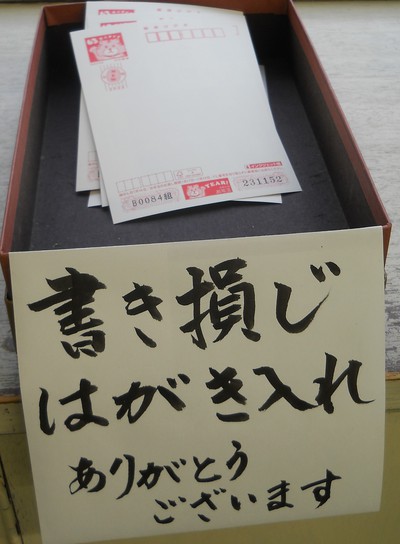 B0084組
231152
書き損じ
はがき入れ
ありがとう
ございます